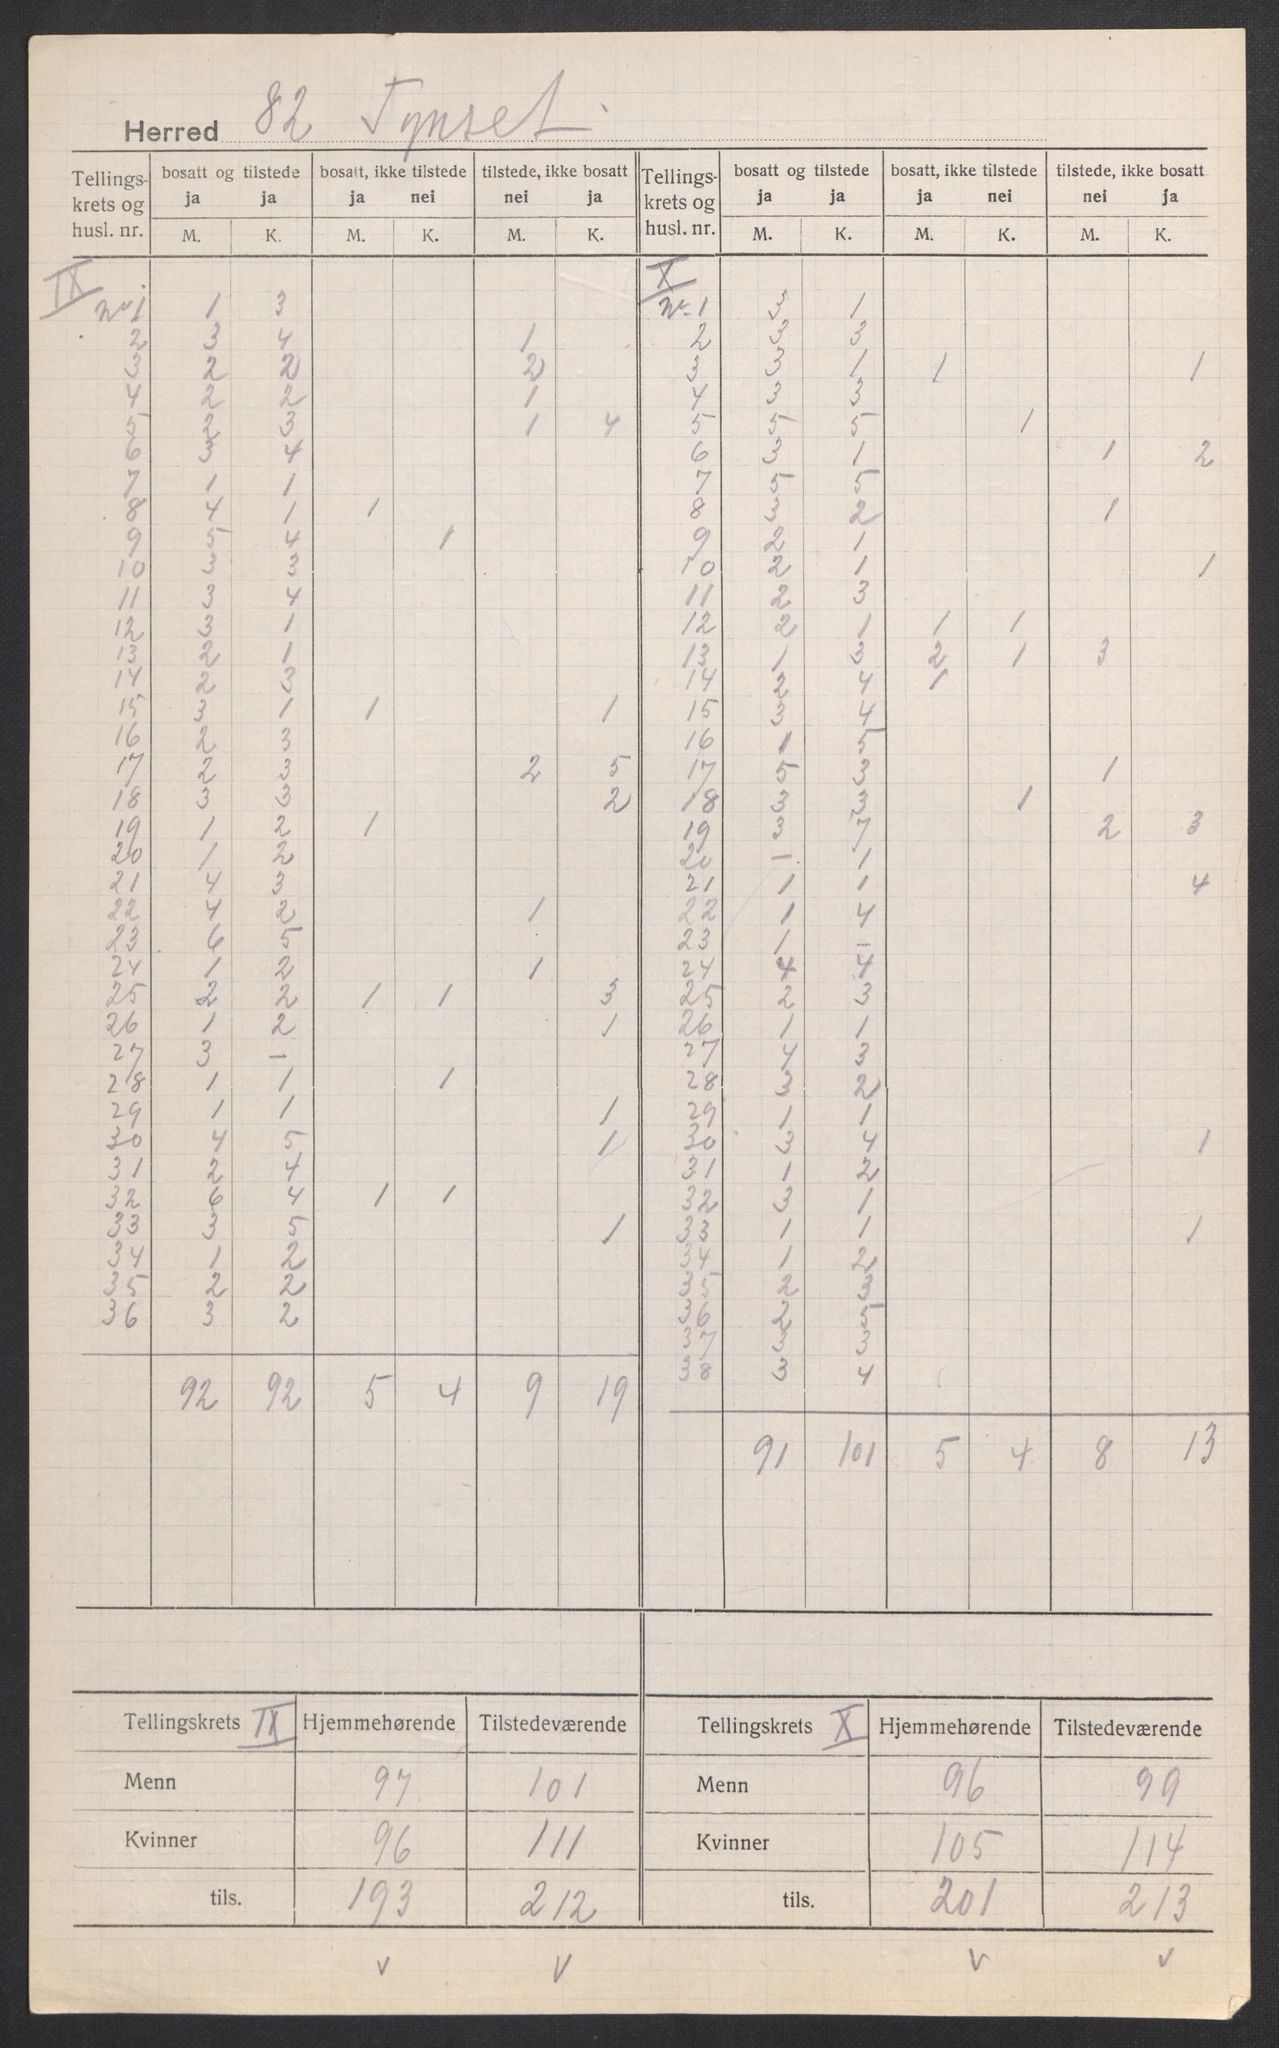 Herred 82 Tynset.
Tellings-krets og husl. nr. | bosatt og tilstede ja ja | bosatt, ikke tilstede ja nei | tilstede, ikke bosatt nei ja | Tellings-krets og husl. nr. | bosatt og tilstede ja ja | bosatt, ikke tilstede ja nei | tilstede, ikke bosatt nei ja
M. K. M. K. M. K. | M. K. M. K. M. K.
IX | X
Nr 1 | 1 | 3 | | | | | Nr. 1 | 3 | 1 | | | |
2 | 3 | 4 | | | 1 | | 2 | 3 | 3 | | | |
3 | 2 | 2 | | | 2 | | 3 | 3 | 1 | 1 | | | 1
4 | 2 | 2 | | | 1 | | 4 | 3 | 3 | | | |
5 | 2 | 3 | | | 1 | 4 | 5 | 5 | 5 | | 1 | |
6 | 3 | 4 | | | | | 6 | 3 | 1 | | | 1 | 2
7 | 1 | 1 | | | | | 7 | 5 | 5 | | | |
8 | 4 | 1 | 1 | | | | 8 | 3 | 2 | | | 1 |
9 | 5 | 4 | | 1 | | | 9 | 2 | 1 | | | |
10 | 3 | 3 | | | | | 10 | 2 | 1 | | | | 1
11 | 3 | 4 | | | | | 11 | 2 | 3 | | | |
12 | 3 | 1 | | | | | 12 | 2 | 1 | 1 | 1 | |
13 | 2 | 1 | | | | | 13 | 1 | 3 | 2 | 1 | 3 |
14 | 2 | 3 | | | | | 14 | 2 | 4 | 1 | | |
15 | 3 | 1 | 1 | | | 1 | 15 | 3 | 4 | | | |
16 | 2 | 3 | | | | | 16 | 1 | 5 | | | |
17 | 2 | 3 | | | 2 | 5 | 17 | 5 | 3 | | | 1 |
18 | 3 | 3 | | | | 2 | 18 | 3 | 3 | | 1 | |
19 | 1 | 2 | 1 | | | | 19 | 3 | 7 | | | 2 | 3
20 | 1 | 2 | | | | | 20 | 1 | 1 | | | |
21 | 4 | 3 | | | | | 21 | 1 | 1 | | | | 4
22 | 4 | 2 | | | 1 | | 22 | 1 | 4 | | | |
23 | 6 | 5 | | | | | 23 | 1 | - | | | |
24 | 1 | 2 | | | 1 | | 24 | 4 | 4 | | | |
25 | 2 | 2 | 1 | 1 | | 3 | 25 | 2 | 3 | | | |
26 | 1 | 2 | | | | 1 | 26 | 1 | 1 | | | |
27 | 3 | - | | | | | 27 | 4 | 3 | | | |
28 | 1 | 1 | | 1 | | | 28 | 3 | 2 | | | |
29 | 1 | 1 | | | | 1 | 29 | 1 | 1 | | | |
30 | 4 | 5 | | | | 1 | 30 | 3 | 4 | | | | 1
31 | 2 | 4 | | | | | 31 | 1 | 2 | | | |
32 | 6 | 4 | 1 | 1 | | | 32 | 3 | 1 | | | |
33 | 3 | 5 | | | | 1 | 33 | 1 | 1 | | | | 1
34 | 1 | 2 | | | | | 34 | 1 | 2 | | | |
35 | 2 | 2 | | | | | 35 | 2 | 3 | | | |
36 | 3 | 2 | | | | | 36 | 2 | 5 | | | |
37 | 3 | 3
38 | 3 | 4
92 | 92 | 5 | 4 | 9 | 19
91 | 101 | 5 | 4 | 8 | 13
Tellingskrets IX | Hjemmehørende | Tilstedeværende | Tellingskrets X | Hjemmehørende | Tilstedeværende
Menn | 97 | 101 | Menn | 96 | 99
Kvinner | 96 | 111 | Kvinner | 105 | 114
tils. | 193 | 212 | tils. | 201 | 213
v v v v